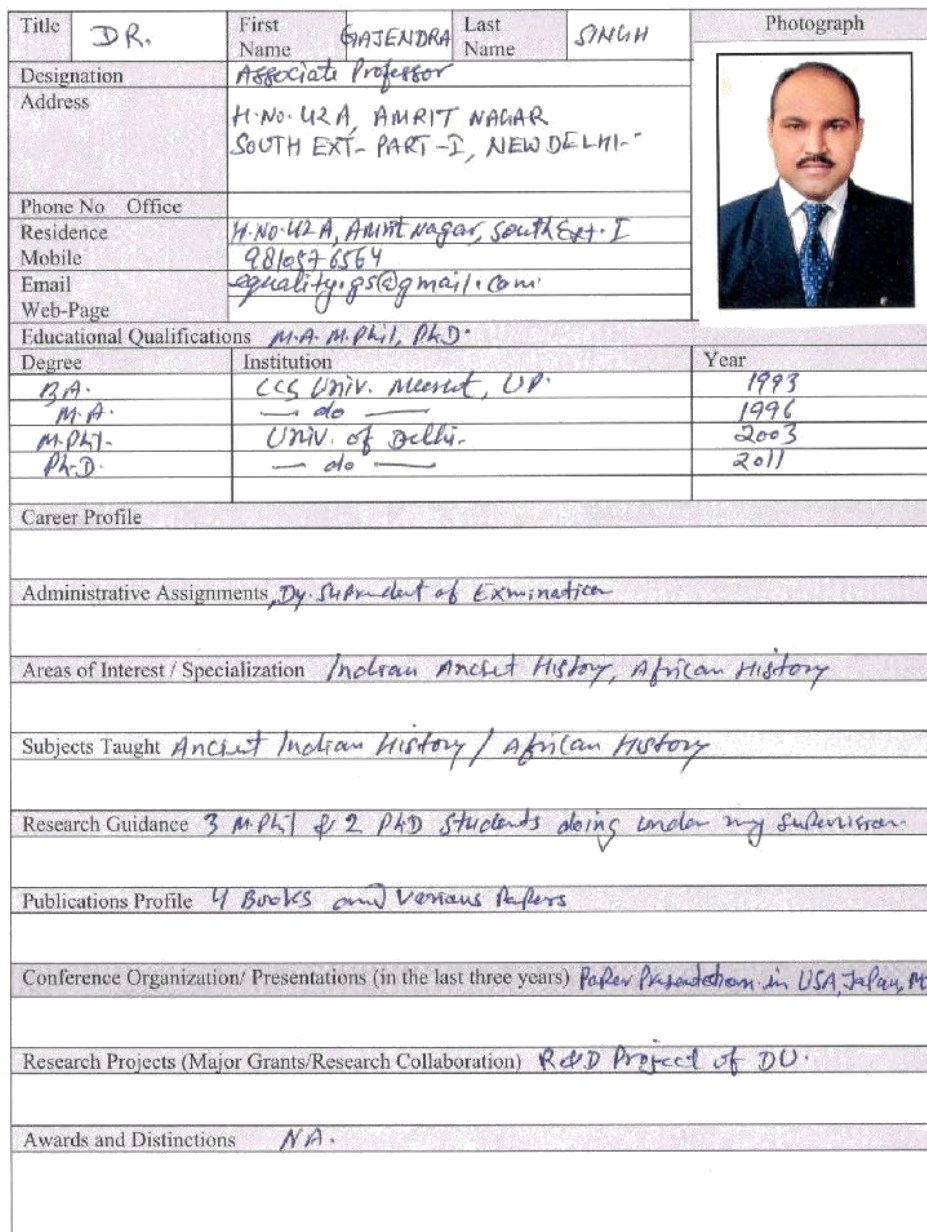 Title DR. First Name GAJENDRA Last Name SINGH Photograph
Designation Associate Professor
Address H.No. 42 A, AMRIT NAGAR
SOUTH EXT- PART-I, NEW DELHI-
Phone No Office
Residence H.NO. 42 A, Amrit Nagar, South Ext. I
Mobile
Email equality.gs@gmail.com
Web-Page
Educational Qualifications M.A. M.Phil, PhD.
Degree Institution Year
BA. CCS Univ. Meerut, UP. 1993
M.A. — do — 1996
M.Phil. Univ. of Delhi. 2003
Ph.D. — do — 2011
Career Profile
Administrative Assignments, Dy. of Exmination
Areas of Interest / Specialization Indian History, African History
Subjects Taught Indian History / African History
Research Guidance 3 M.Phil & 2 PhD Students doing under my Supervision.
Publications Profile 4 Books and Various Papers
Conference Organization/ Presentations (in the last three years) Paper Presentation in USA, Japan, M
Research Projects (Major Grants/Research Collaboration) R&D Project of DU.
Awards and Distinctions NA.